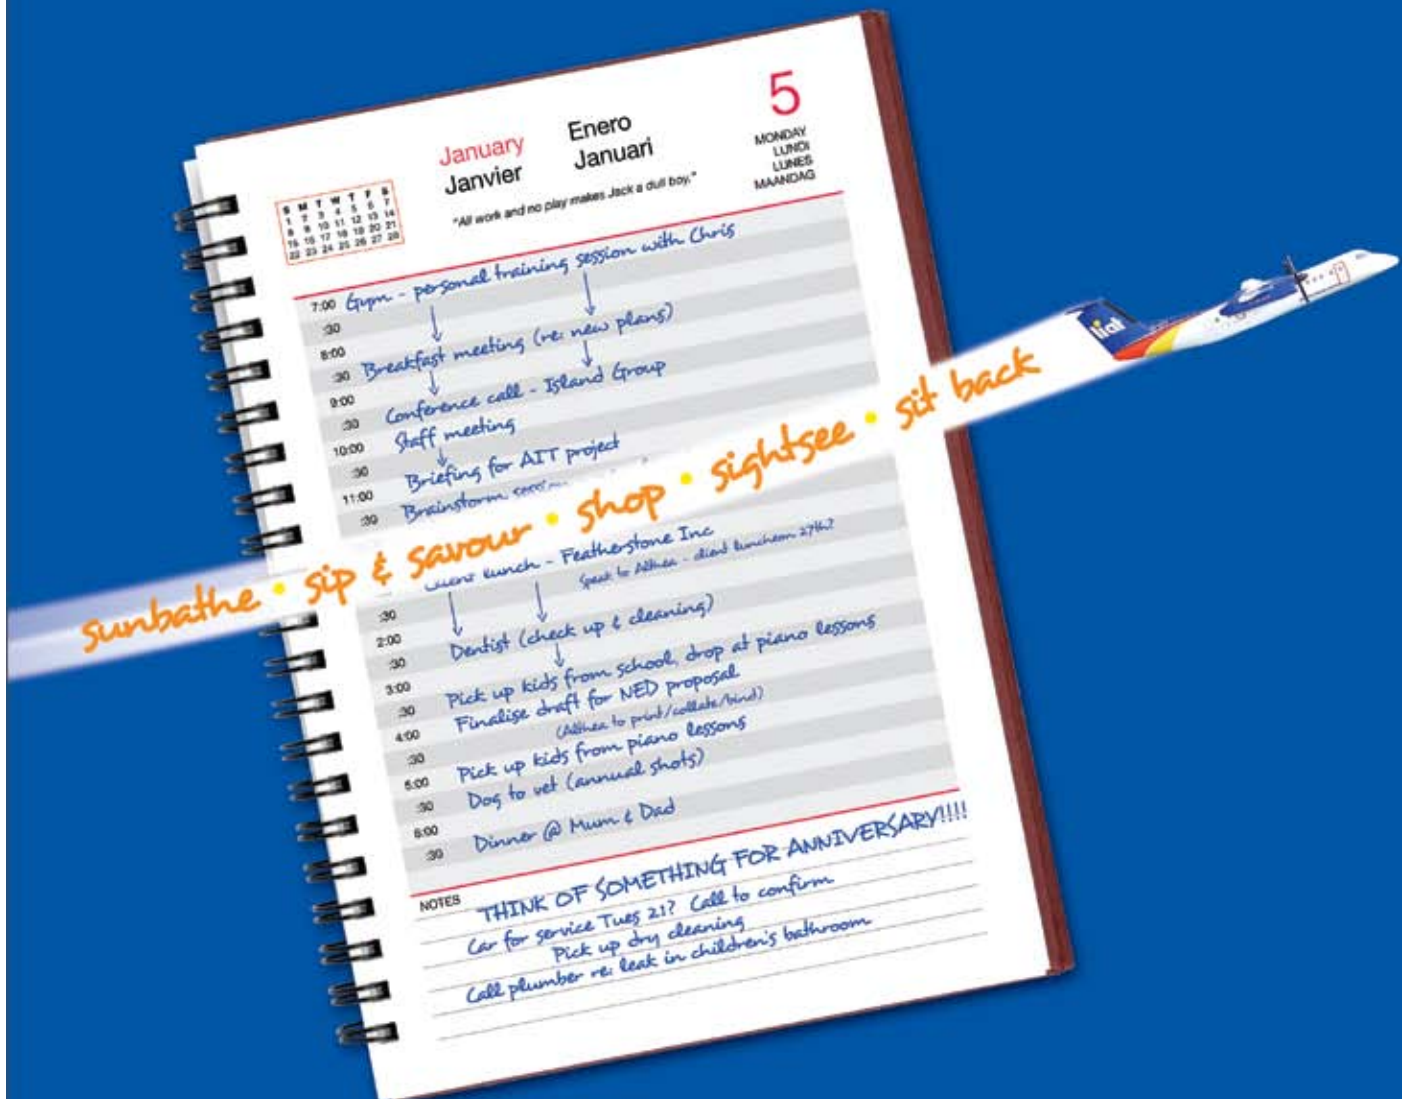 5
January Enero
Janvier Januari
MONDAY
LUNDI
LUNES
MAANDAG
"All work and no play makes Jack a dull boy."
S M T W T F S
1 2 3 4 5 6 7
8 9 10 11 12 13 14
15 16 17 18 19 20 21
22 23 24 25 26 27 28
7:00 Gym - personal training session with Chris
:30
8:00
:30 Breakfast meeting (re: new plans)
9:00
:30 Conference call - Island Group
10:00 Staff meeting
:30
11:00 Briefing for AIT project
:30 Brainstorm
sunbathe • sip & savour • shop • sightsee • sit back
liat
lunch - Featherstone Inc
Speak to Althea - client luncheon 27th?
:30
2:00
:30 Dentist (check up & cleaning)
3:00
:30 Pick up kids from school, drop at piano lessons
4:00 Finalise draft for NED proposal
(Althea to print/collate/bind)
:30
5:00 Pick up kids from piano lessons
:30 Dog to vet (annual shots)
6:00
:30 Dinner @ Mum & Dad
NOTES THINK OF SOMETHING FOR ANNIVERSARY!!!!
Car for service Tues 21? Call to confirm
Pick up dry cleaning
Call plumber re: leak in children's bathroom